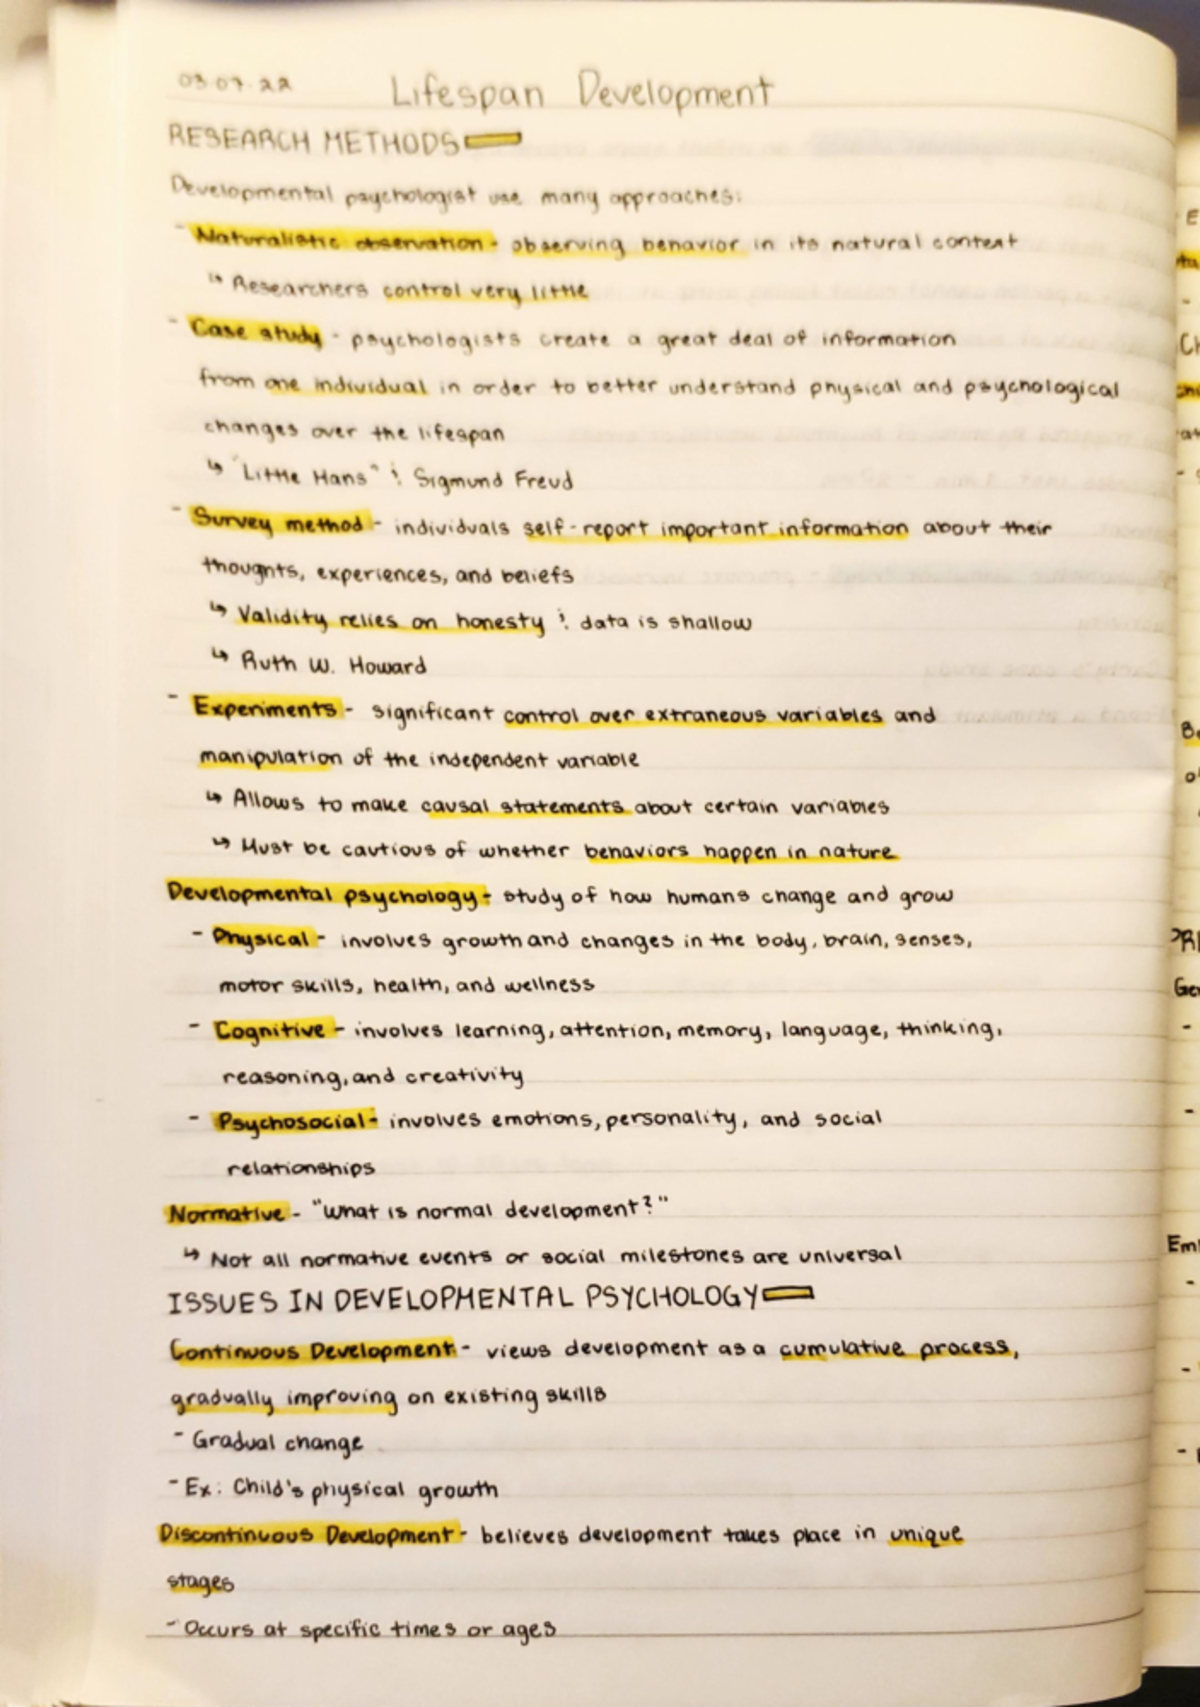 03.07.22 Lifespan Development
RESEARCH METHODS
Developmental psychologist use many approaches:
- Naturalistic observation - observing behavior in its natural context
↳ Researchers control very little
- Case study - psychologists create a great deal of information
from one individual in order to better understand physical and psychological
changes over the lifespan
↳ "Little Hans" & Sigmund Freud
- Survey method - individuals self-report important information about their
thoughts, experiences, and beliefs
↳ Validity relies on honesty & data is shallow
↳ Ruth W. Howard
- Experiments - significant control over extraneous variables and
manipulation of the independent variable
↳ Allows to make causal statements about certain variables
↳ Must be cautious of whether behaviors happen in nature
Developmental psychology - study of how humans change and grow
- Physical - involves growth and changes in the body, brain, senses,
motor skills, health, and wellness
- Cognitive - involves learning, attention, memory, language, thinking,
reasoning, and creativity
- Psychosocial - involves emotions, personality, and social
relationships
Normative - "What is normal development?"
↳ Not all normative events or social milestones are universal
ISSUES IN DEVELOPMENTAL PSYCHOLOGY
Continuous Development - views development as a cumulative process,
gradually improving on existing skills
- Gradual change
- Ex: Child's physical growth
Discontinuous Development - believes development takes place in unique
stages
- Occurs at specific times or ages